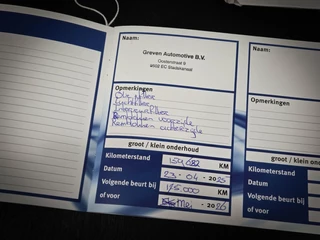 Naam:
Greven Automotive B.V.
Oosterstraat 9
9502 EC Stadskanaal
Opmerkingen
Olie, filter
Luchtfilter
Interieurfilter
Remblokken voorzijde
Remblokken achterzijde
groot / klein onderhoud
Kilometerstand 154682 KM
Datum 23 - 04 - 2025
Volgende beurt bij 175.000 KM
of voor Mei - 2026
Naam:
Opmerkingen
groot / klein
Kilometerstand
Datum
Volgende beurt bij
of voor